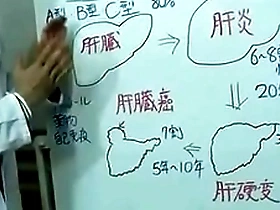 A型・B型 C型
80%
肝臓
肝炎
6~8
ール
薬物
自己免疫
肝臓癌
7割
5年~10年
肝硬変